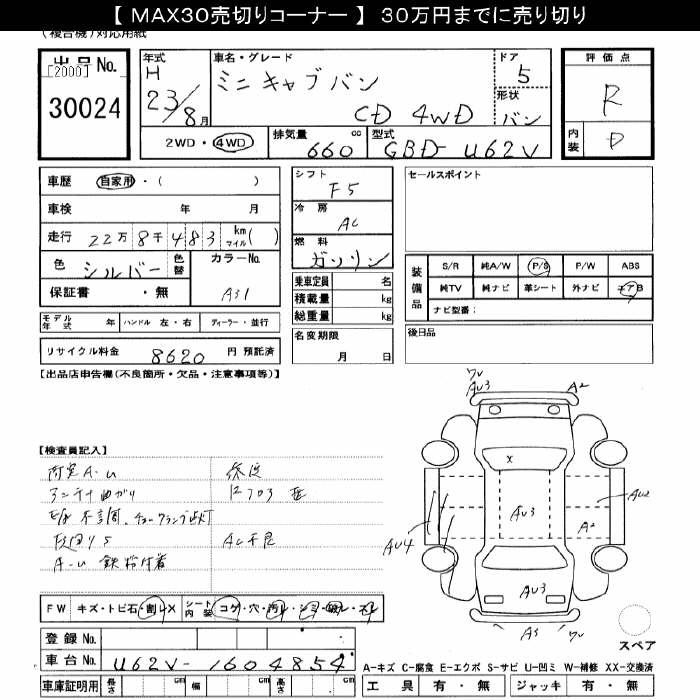 【 MAX30売切りコーナー 】 30万円までに売り切り
(複合機)対応用紙
出品No.
[2000]
30024
年式
H
23/8月
車名・グレード
ミニキャブバン
CD 4WD
ドア
5
形状
バン
2WD・4WD
排気量
cc
660
型式
GBD-U62V
評価点
R
内装
D
車歴 自家用・( )
車検 年 月
走行 22万8千483 km マイル( )
色 シルバー 色替
カラーNo.
A31
保証書・無
シフト
F5
冷房
AC
燃料
ガソリン
乗車定員 名
積載量 kg
総重量 kg
名変期限
月 日
セールスポイント
装備品
S/R 純A/W P/S P/W ABS
純TV 純ナビ 革シート 外ナビ エアB
ナビ型番:
後日品
モデル年式 年 ハンドル 左・右 ディーラー・並行
リサイクル料金 8620 円 預託済
【出品店申告欄(不良箇所・欠品・注意事項等)】
【検査員記入】
アンテナ曲がり
不調、チェックランプ点灯
AC不良
A-U 鉄粉付着
FW キズ・トビ石・割レX
シート内装 コゲ・穴・汚レ・シミ
登録No.
車台No. U62V-1604854
車庫証明用 長さ cm 幅 cm 高さ cm
AU3
A2
X
AU3
AU2
A2
AU4
AU3
A3
スペア
A-キズ C-腐食 E-エクボ S-サビ U-凹ミ W-補修 XX-交換済
工具 有・無 ジャッキ 有・無